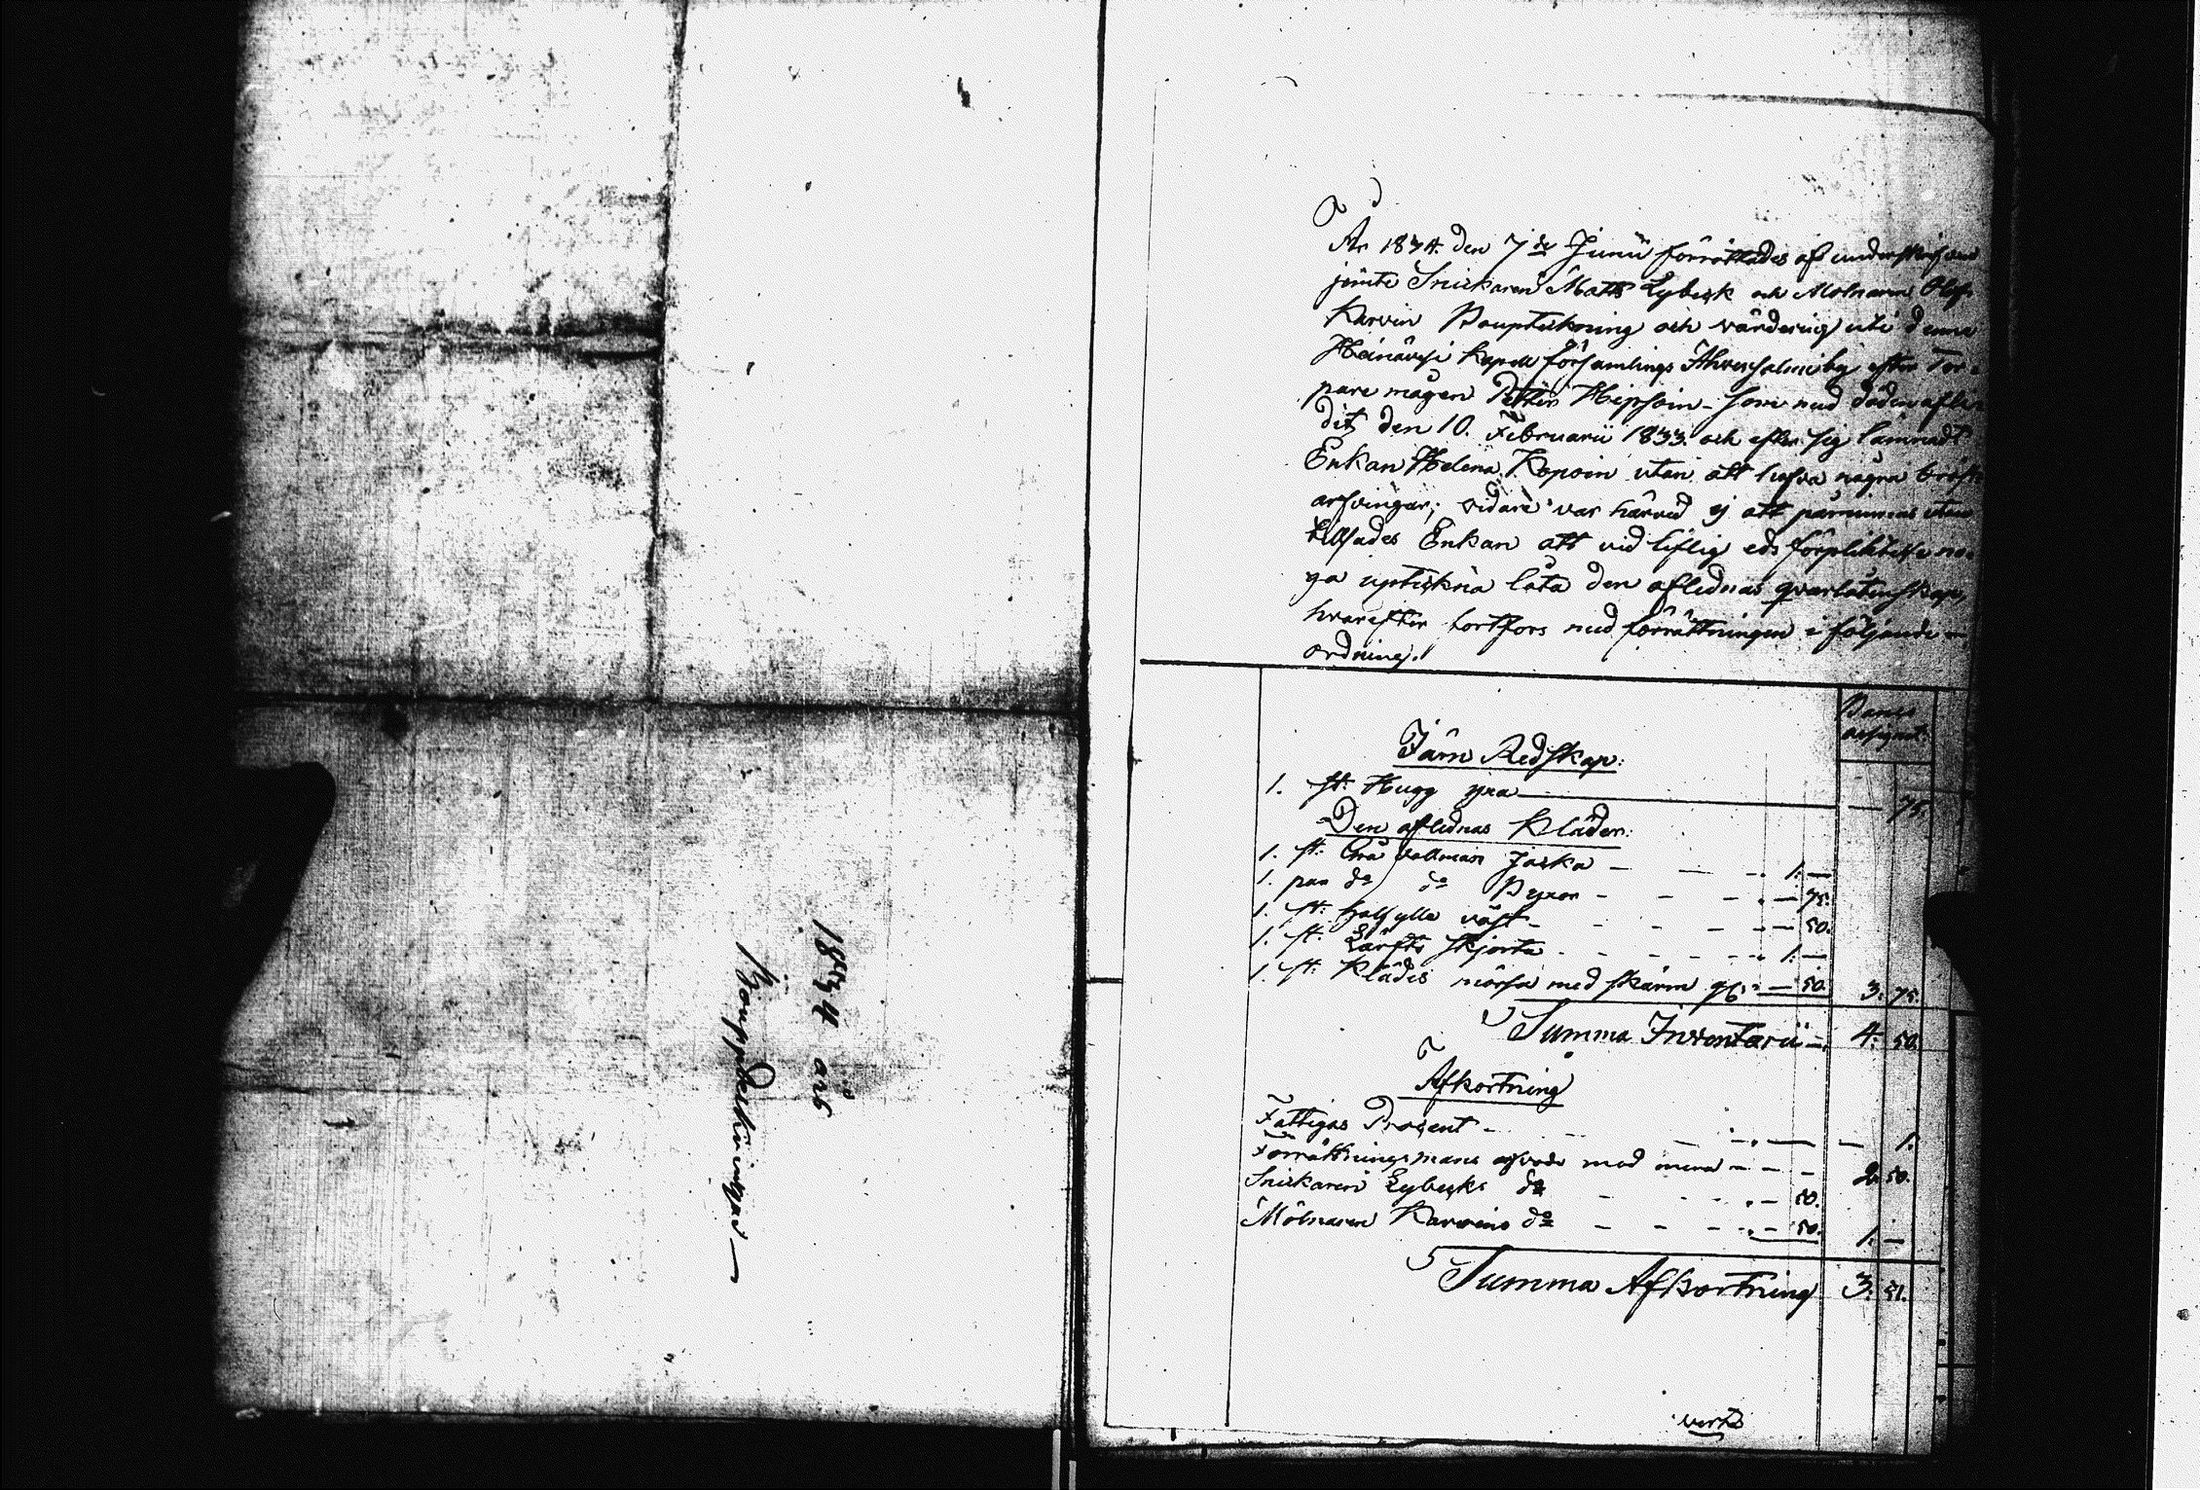 1834 års
Bouppteckningar
År 1834 den 7de Junii förrättades af undertecknad
jämte Snickaren Matts Lybeck och Molnaren Olof
Karvin Bouptekning och värdering uti denna
Heinävesi Kapell församlings Ihvensalmi by efter Tor-
pare mågen Petter Hipsoin som med döden afle-
dit den 10. Februarii 1833. och efter sig lämnadt
Enkan Helena Kopoin utan att hafva några bröst
arfvingar; vidare var härvid ej att påminnas utan
tillsades Enkan att vid liflig eds förpliktelse no-
ga uptekna låta den aflednas qvarlåtenskap,
hvarefter fortfors med förrättningen i följande
ordning.
Banco
assignat:
Järn Redskap:
1. st. Hugg yxa — 75.
Den aflednas Kläder:
1. st: Grå vallman Jacka - - - 1: —
1. par do do Byxor - - - — 75.
1. st: halfylle väst - - - — 50.
1. st. Lärfts skjorta - - - 1: —
1. st: Klädes mössa med skärm — 50. 3. 75.
Summa Inventarii —. 4: 50.
Afkortning
Fattigas Procent - - — — 1.
Förrättningsmans arfvode med mera - - - 2. 50.
Snickaren Lybecks do - - - 50.
Molnaren Karvins do - - - 50. 1. —
Summa Afkortning 3. 51.